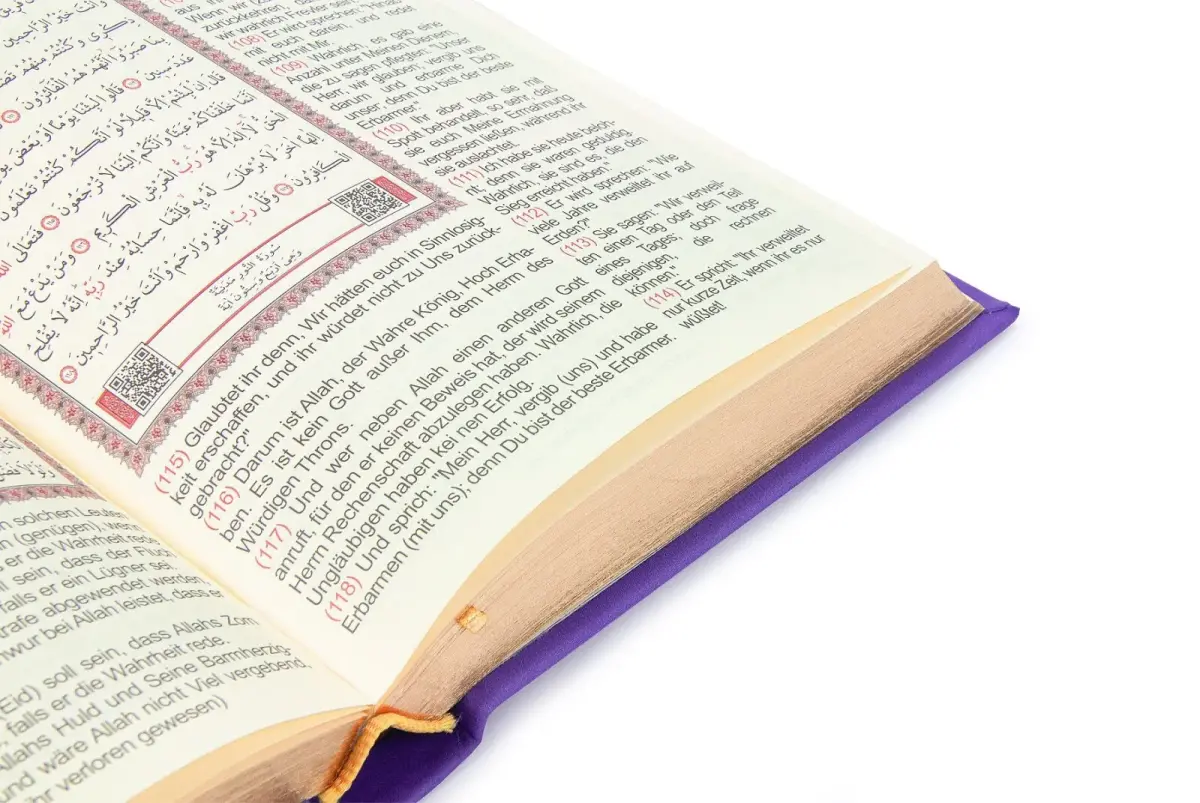 وَأَنتَ خَيْرُ الرَّاحِمِينَ
ذِكْرِي وَكُنتُم مِّنْهُمْ
بِمَا صَبَرُوا أَنَّهُمْ هُمُ الْفَائِزُونَ
عَدَدَ سِنِينَ قَالُوا لَبِثْنَا يَوْمًا أَوْ بَعْضَ
قَالَ إِن لَّبِثْتُمْ إِلَّا قَلِيلًا لَوْ أَنَّكُمْ كُنتُمْ تَعْلَمُونَ
أَنَّمَا خَلَقْنَاكُمْ عَبَثًا وَأَنَّكُمْ إِلَيْنَا لَا تُرْجَعُونَ فَتَعَالَى اللَّهُ
الْحَقُّ لَا إِلَهَ إِلَّا هُوَ رَبُّ الْعَرْشِ الْكَرِيمِ وَمَنْ يَدْعُ مَعَ اللَّهِ
إِلَهًا آخَرَ لَا بُرْهَانَ لَهُ بِهِ فَإِنَّمَا حِسَابُهُ عِنْدَ رَبِّهِ إِنَّهُ لَا يُفْلِحُ
الْكَافِرُونَ وَقُلْ رَبِّ اغْفِرْ وَارْحَمْ وَأَنتَ خَيْرُ الرَّاحِمِينَ
سُورَةُ النُّورِ مَدَنِيَّةٌ
وَهِيَ أَرْبَعٌ وَسِتُّونَ آيَةً
aus ihr
Wenn wir
zurückkehren, dann
wir wahrlich Frevler sein."
(108) Er wird sprechen: "Hinab
mit euch darein, und redet
nicht mit Mir.
(109) Wahrlich, es gab eine
Anzahl unter Meinen Dienern,
die zu sagen pflegten: "Unser
Herr, wir glauben; vergib uns
darum und erbarme Dich
unser, denn Du bist der beste
Erbarmer."
(110) Ihr aber habt sie mit
Spott behandelt, so sehr, daß
sie euch Meine Ermahnung
vergessen ließen, während ihr
sie auslachtet.
(111) Ich habe sie heute beloh-
nt, denn sie waren geduldig.
Wahrlich, sie sind es, die den
Sieg erreicht haben."
(112) Er wird sprechen: "Wie
viele Jahre verweiltet ihr auf
Erden?"
(113) Sie sagen: "Wir verweil-
ten einen Tag oder den Teil
eines Tages; doch frage
diejenigen, die rechnen
können."
(114) Er spricht: "Ihr verweiltet
nur kurze Zeit, wenn ihr es nur
wüßtet!
(115) Glaubtet ihr denn, Wir hätten euch in Sinnlosig-
keit erschaffen, und ihr würdet nicht zu Uns zurück-
gebracht?"
(116) Darum ist Allah, der Wahre König, Hoch Erha-
ben. Es ist kein Gott außer Ihm, dem Herrn des
Würdigen Throns.
(117) Und wer neben Allah einen anderen Gott
anruft, für den er keinen Beweis hat, der wird seinem
Herrn Rechenschaft abzulegen haben. Wahrlich, die
Ungläubigen haben kei nen Erfolg.
(118) Und sprich: "Mein Herr, vergib (uns) und habe
Erbarmen (mit uns); denn Du bist der beste Erbarmer.
solchen Leuten
(genügen), wenn
er die Wahrheit rede
sein, dass der Fluch
falls er ein Lügner sei
abgewendet werden,
bei Allah leistet, dass er
Eid) soll sein, dass Allahs Zorn
falls er die Wahrheit rede.
Allahs Huld und Seine Barmherzig-
und wäre Allah nicht Viel vergebend,
ihr verloren gewesen)